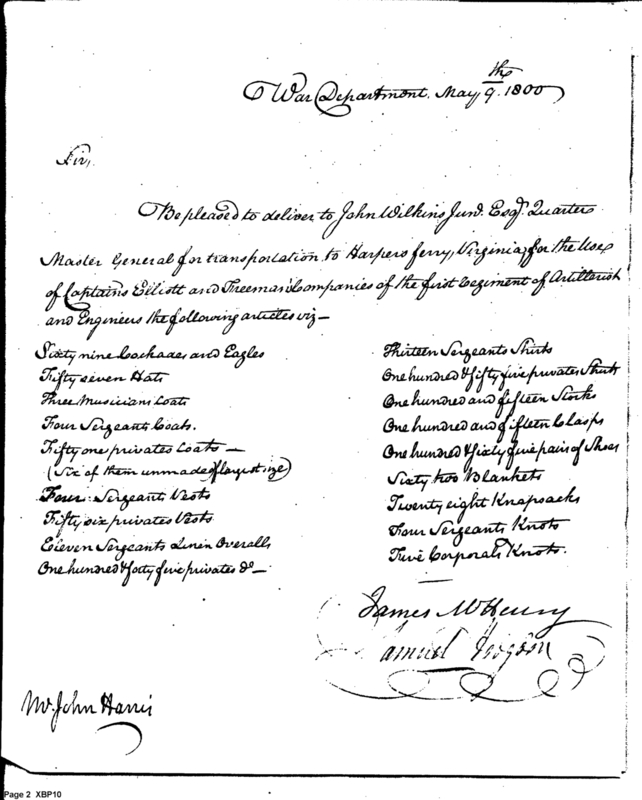 War Department. May 9th. 1800
Sir,
Be pleased to deliver to John Wilkins Junr. Esqr. Quarter
Master General for transportation to Harpers ferry, Virginia, for the Use
of Captains Elliott and Freeman Companies of the first Regiment of Artillerist
and Engineers the following articles viz—
Sixty nine Cockades and Eagles
Fifty seven Hats
Three Musicians Coats
Four Sergeants Coats.
Fifty one privates Coats —
(Six of them unmade of largest size)
Four Sergeants Vests
Fifty six privates Vests
Eleven Sergeants Linen Overalls
One hundred & forty five privates Do —
Thirteen Sergeants Shirts
One hundred & fifty five privates Shirts
One hundred and fifteen Stocks
One hundred and fifteen Clasps
One hundred & sixty five pairs of Shoes
Sixty two Blankets
Twenty eight Knapsacks
Four Sergeants Knots
Five Corporals Knots.
James McHenry
Samuel Hodgson
Mr. John Harris
Page 2 XBP10